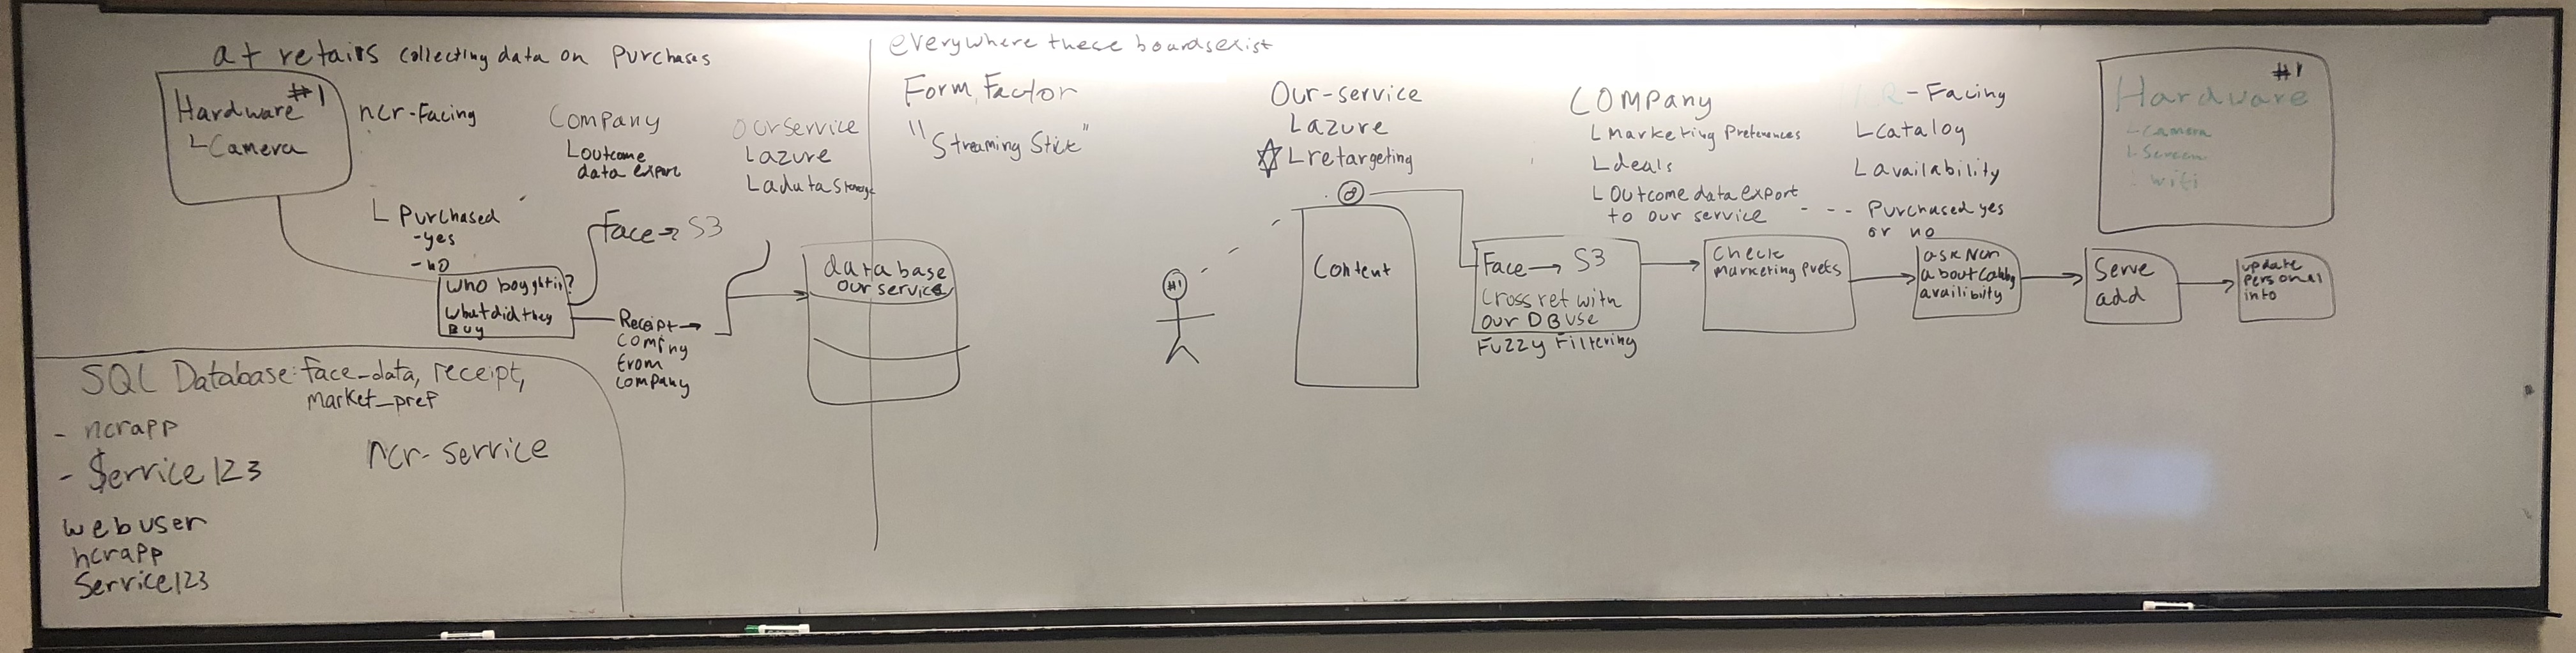 at retairs collecting data on purchases
Hardware #1
└ Camera
ncr-Facing
└ Purchased
-yes
-no
Company
└ outcome
data export
our service
└ azure
└ data storage
Face → S3
who boyght it?
what did they
Buy
Receipt →
coming
from
company
database
our service
SQL Database: face_data, receipt,
market_pref
- ncrapp
- Service123
ncr-service
webuser
ncrapp
Service123
everywhere these boards exist
Form Factor
"Streaming Stick"
Our-service
└ azure
☆ └ retargeting
#1
Content
COMPany
└ Marketing Preferences
└ deals
└ Outcome data export
to our service - - -
-Facing
└ Catalog
└ availability
Purchased yes
or no
Hardware #1
└ Camera
└ Screen
└ wifi
Face → S3
Cross ref with
our DB use
Fuzzy Filtering
Check
marketing prefs
ask Ncr
about
availibity
Serve
add
update
personal
info